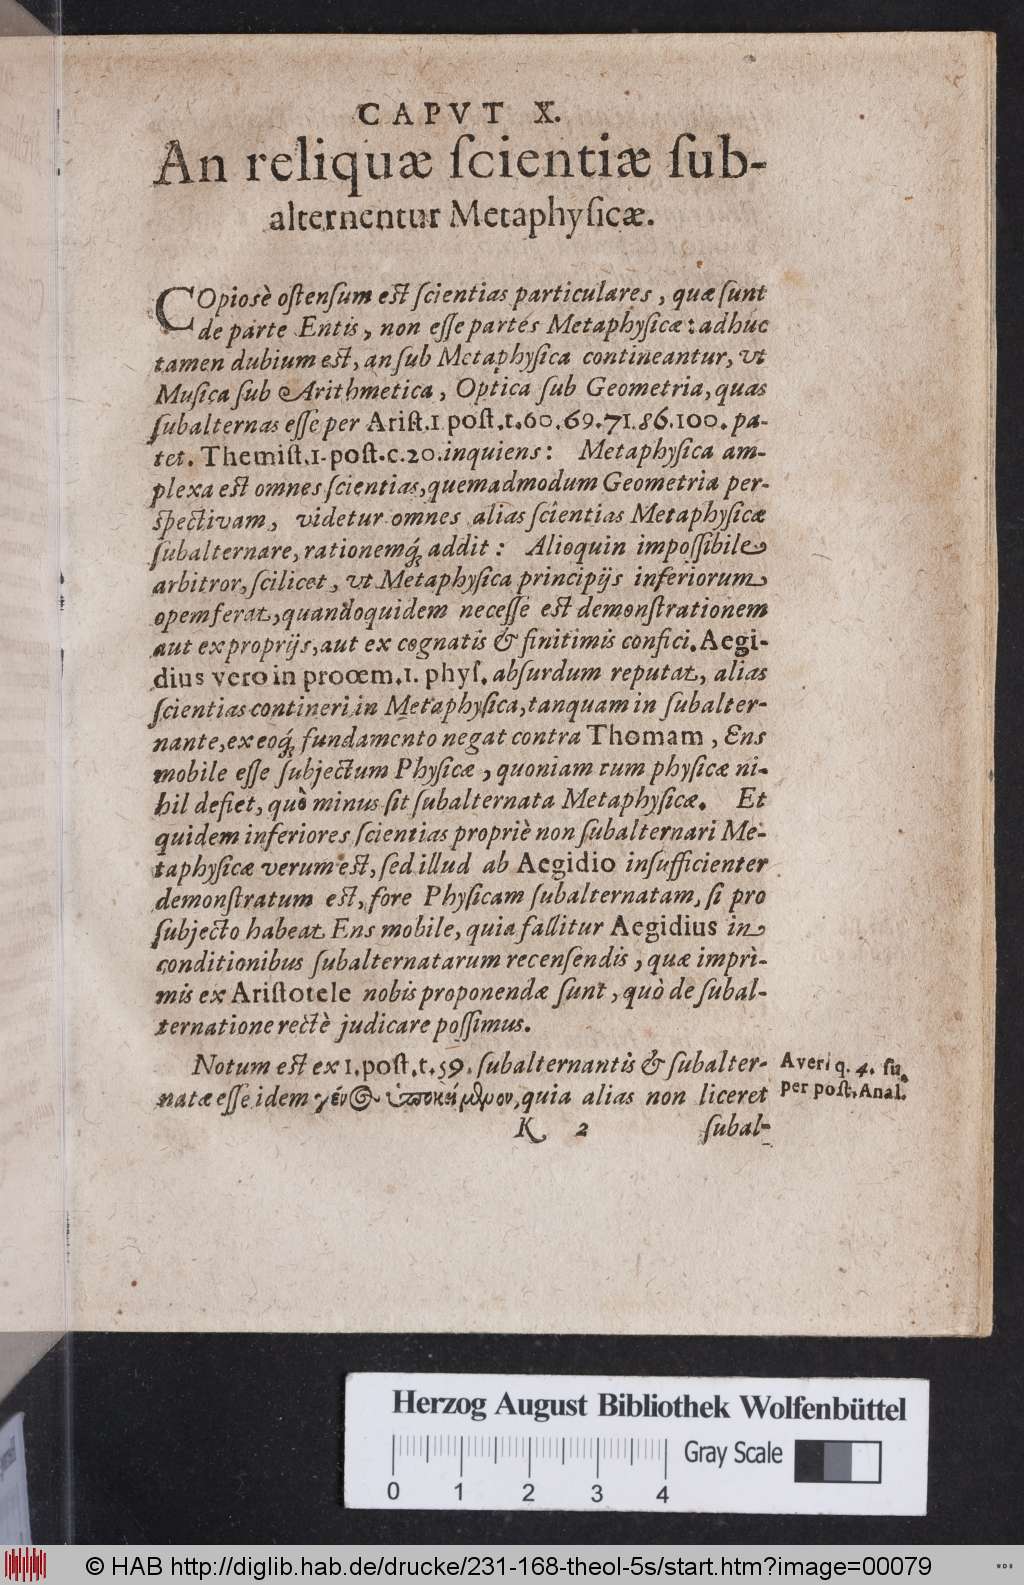 CAPVT X.
An reliquæ ſcientiæ ſub-
alternentur Metaphyſicæ.
COpiosè oſtenſum eſt ſcientias particulares, quæ ſunt
de parte Entis, non eſſe partes Metaphyſicæ: adhuc
tamen dubium eſt, an ſub Metaphyſica contineantur, vt
Muſica ſub Arithmetica, Optica ſub Geometria, quas
ſubalternas eſſe per Ariſt.1 poſt.t.60.69.71.86.100. pa-
tet. Themiſt.1.poſt.c.20. inquiens: Metaphyſica am-
plexa eſt omnes ſcientias, quemadmodum Geometria per-
ſpectivam, videtur omnes alias ſcientias Metaphyſicæ
ſubalternare, rationemq́; addit: Alioquin impoſſibile
arbitror, ſcilicet, vt Metaphyſica principijs inferiorum
opem ferat, quandoquidem neceſſe eſt demonſtrationem
aut ex proprijs, aut ex cognatis & finitimis confici. Aegi-
dius vero in prooem.1. phyſ. abſurdum reputat, alias
ſcientias contineri in Metaphyſica, tanquam in ſubalter-
nante, ex eoq́; fundamento negat contra Thomam, Ens
mobile eſſe ſubjectum Phyſicæ, quoniam tum phyſicæ ni-
hil defiet, quò minus ſit ſubalternata Metaphyſicæ. Et
quidem inferiores ſcientias propriè non ſubalternari Me-
taphyſicæ verum eſt, ſed illud ab Aegidio inſufficienter
demonſtratum eſt, fore Phyſicam ſubalternatam, ſi pro
ſubjecto habeat Ens mobile, quia fallitur Aegidius in
conditionibus ſubalternatarum recenſendis, quæ imprì-
mis ex Ariſtotele nobis proponendæ ſunt, quò de ſubal-
ternatione rectè judicare poſſimus.
Notum eſt ex 1.poſt.t.59. ſubalternantis & ſubalter-
natæ eſſe idem γένος ὑποκείμενον, quia alias non liceret
Averr q. 4. ſu.
per poſt. Anal.
K 2 ſubal-
Herzog August Bibliothek Wolfenbüttel
Gray Scale
0 1 2 3 4
© HAB http://diglib.hab.de/drucke/231-168-theol-5s/start.htm?image=00079